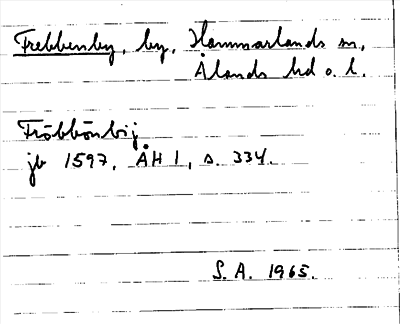 Frebbenby, by, Hammarlands sn,
Ålands hd o. l.
Fröbbönbÿ
jb 1597, ÅH 1, s. 334.
S. A. 1965.